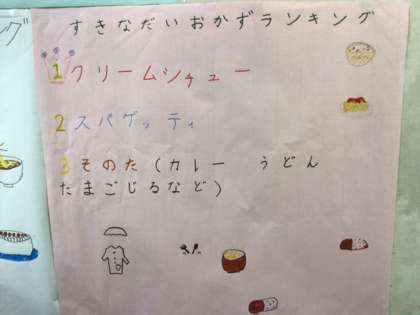 グ
すきなだいおかずランキング
1クリームシチュー
2スパゲッティ
3そのた(カレー うどん
たまごじるなど)